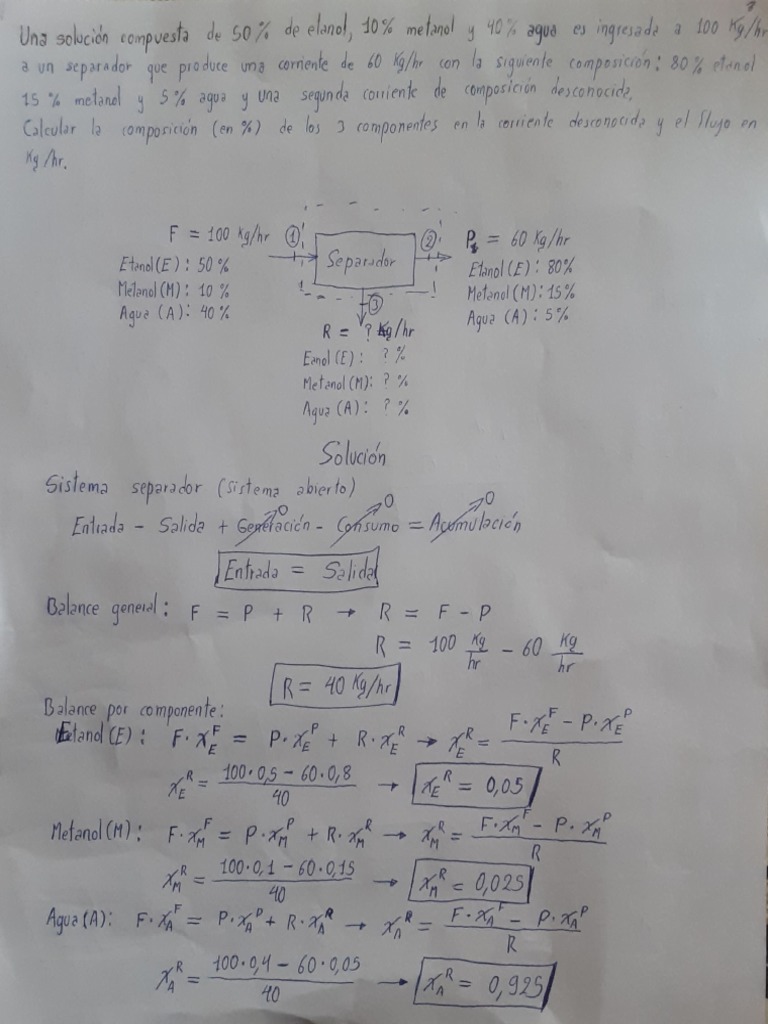 Una solución compuesta de 50% de etanol, 10% metanol y 40% agua es ingresada a 100 Kg/hr
a un separador que produce una corriente de 60 Kg/hr con la siguiente composición: 80% etanol
15% metanol y 5% agua y una segunda corriente de composición desconocida.
Calcular la composición (en %) de los 3 componentes en la corriente desconocida y el flujo en
Kg/hr.
F = 100 Kg/hr
Etanol(E): 50%
Metanol(M): 10%
Agua (A): 40%
①
Separador
②
③
P = 60 Kg/hr
Etanol(E): 80%
Metanol(M): 15%
Agua (A): 5%
R = ? Kg/hr
Eanol (E): ? %
Metanol(M): ? %
Agua (A): ? %
Solución
Sistema separador (sistema abierto)
Entrada - Salida + Generación⁰ - Consumo⁰ = Acumulación⁰
Entrada = Salida
Balance general: F = P + R → R = F - P
R = 100 Kg/hr - 60 Kg/hr
R = 40 Kg/hr
Balance por componente:
Etanol (E): F·x_E^F = P·x_E^P + R·x_E^R → x_E^R = (F·x_E^F - P·x_E^P)/R
x_E^R = (100·0,5 - 60·0,8)/40 → x_E^R = 0,05
Metanol (M): F·x_M^F = P·x_M^P + R·x_M^R → x_M^R = (F·x_M^F - P·x_M^P)/R
x_M^R = (100·0,1 - 60·0,15)/40 → x_M^R = 0,025
Agua (A): F·x_A^F = P·x_A^P + R·x_A^R → x_A^R = (F·x_A^F - P·x_A^P)/R
x_A^R = (100·0,4 - 60·0,05)/40 → x_A^R = 0,925